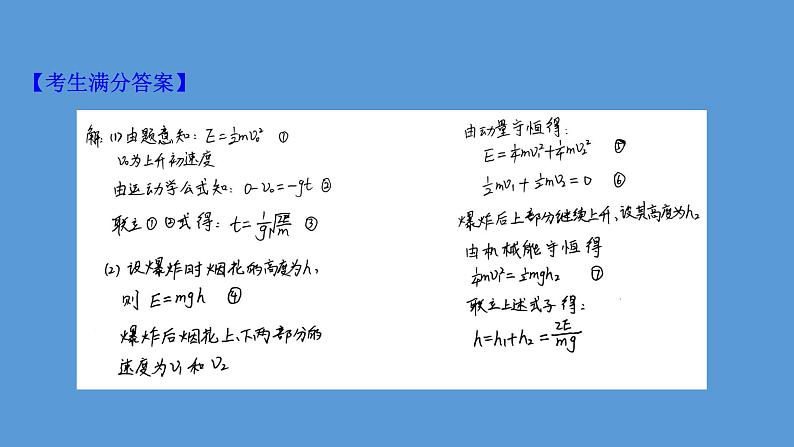 【考生满分答案】
解:(1)由题意知:E=½mv₀² ①
v₀为上升初速度
由运动学公式知:0-v₀=-gt ②
联立①②式得:t=\frac{1}{g}\sqrt{\frac{2E}{m}} ③
(2)设爆炸时烟花的高度为h₁
则 E=mgh ④
爆炸后烟花上、下两部分的
速度为v₁和v₂
由动量守恒得:
E=¼mv₁²+¼mv₂² ⑤
½mv₁+½mv₂=0 ⑥
爆炸后上部分继续上升,设其高度为h₂
由机械能守恒得
¼mv₁²=½mgh₂ ⑦
联立上述式子得:
h=h₁+h₂=\frac{2E}{mg}